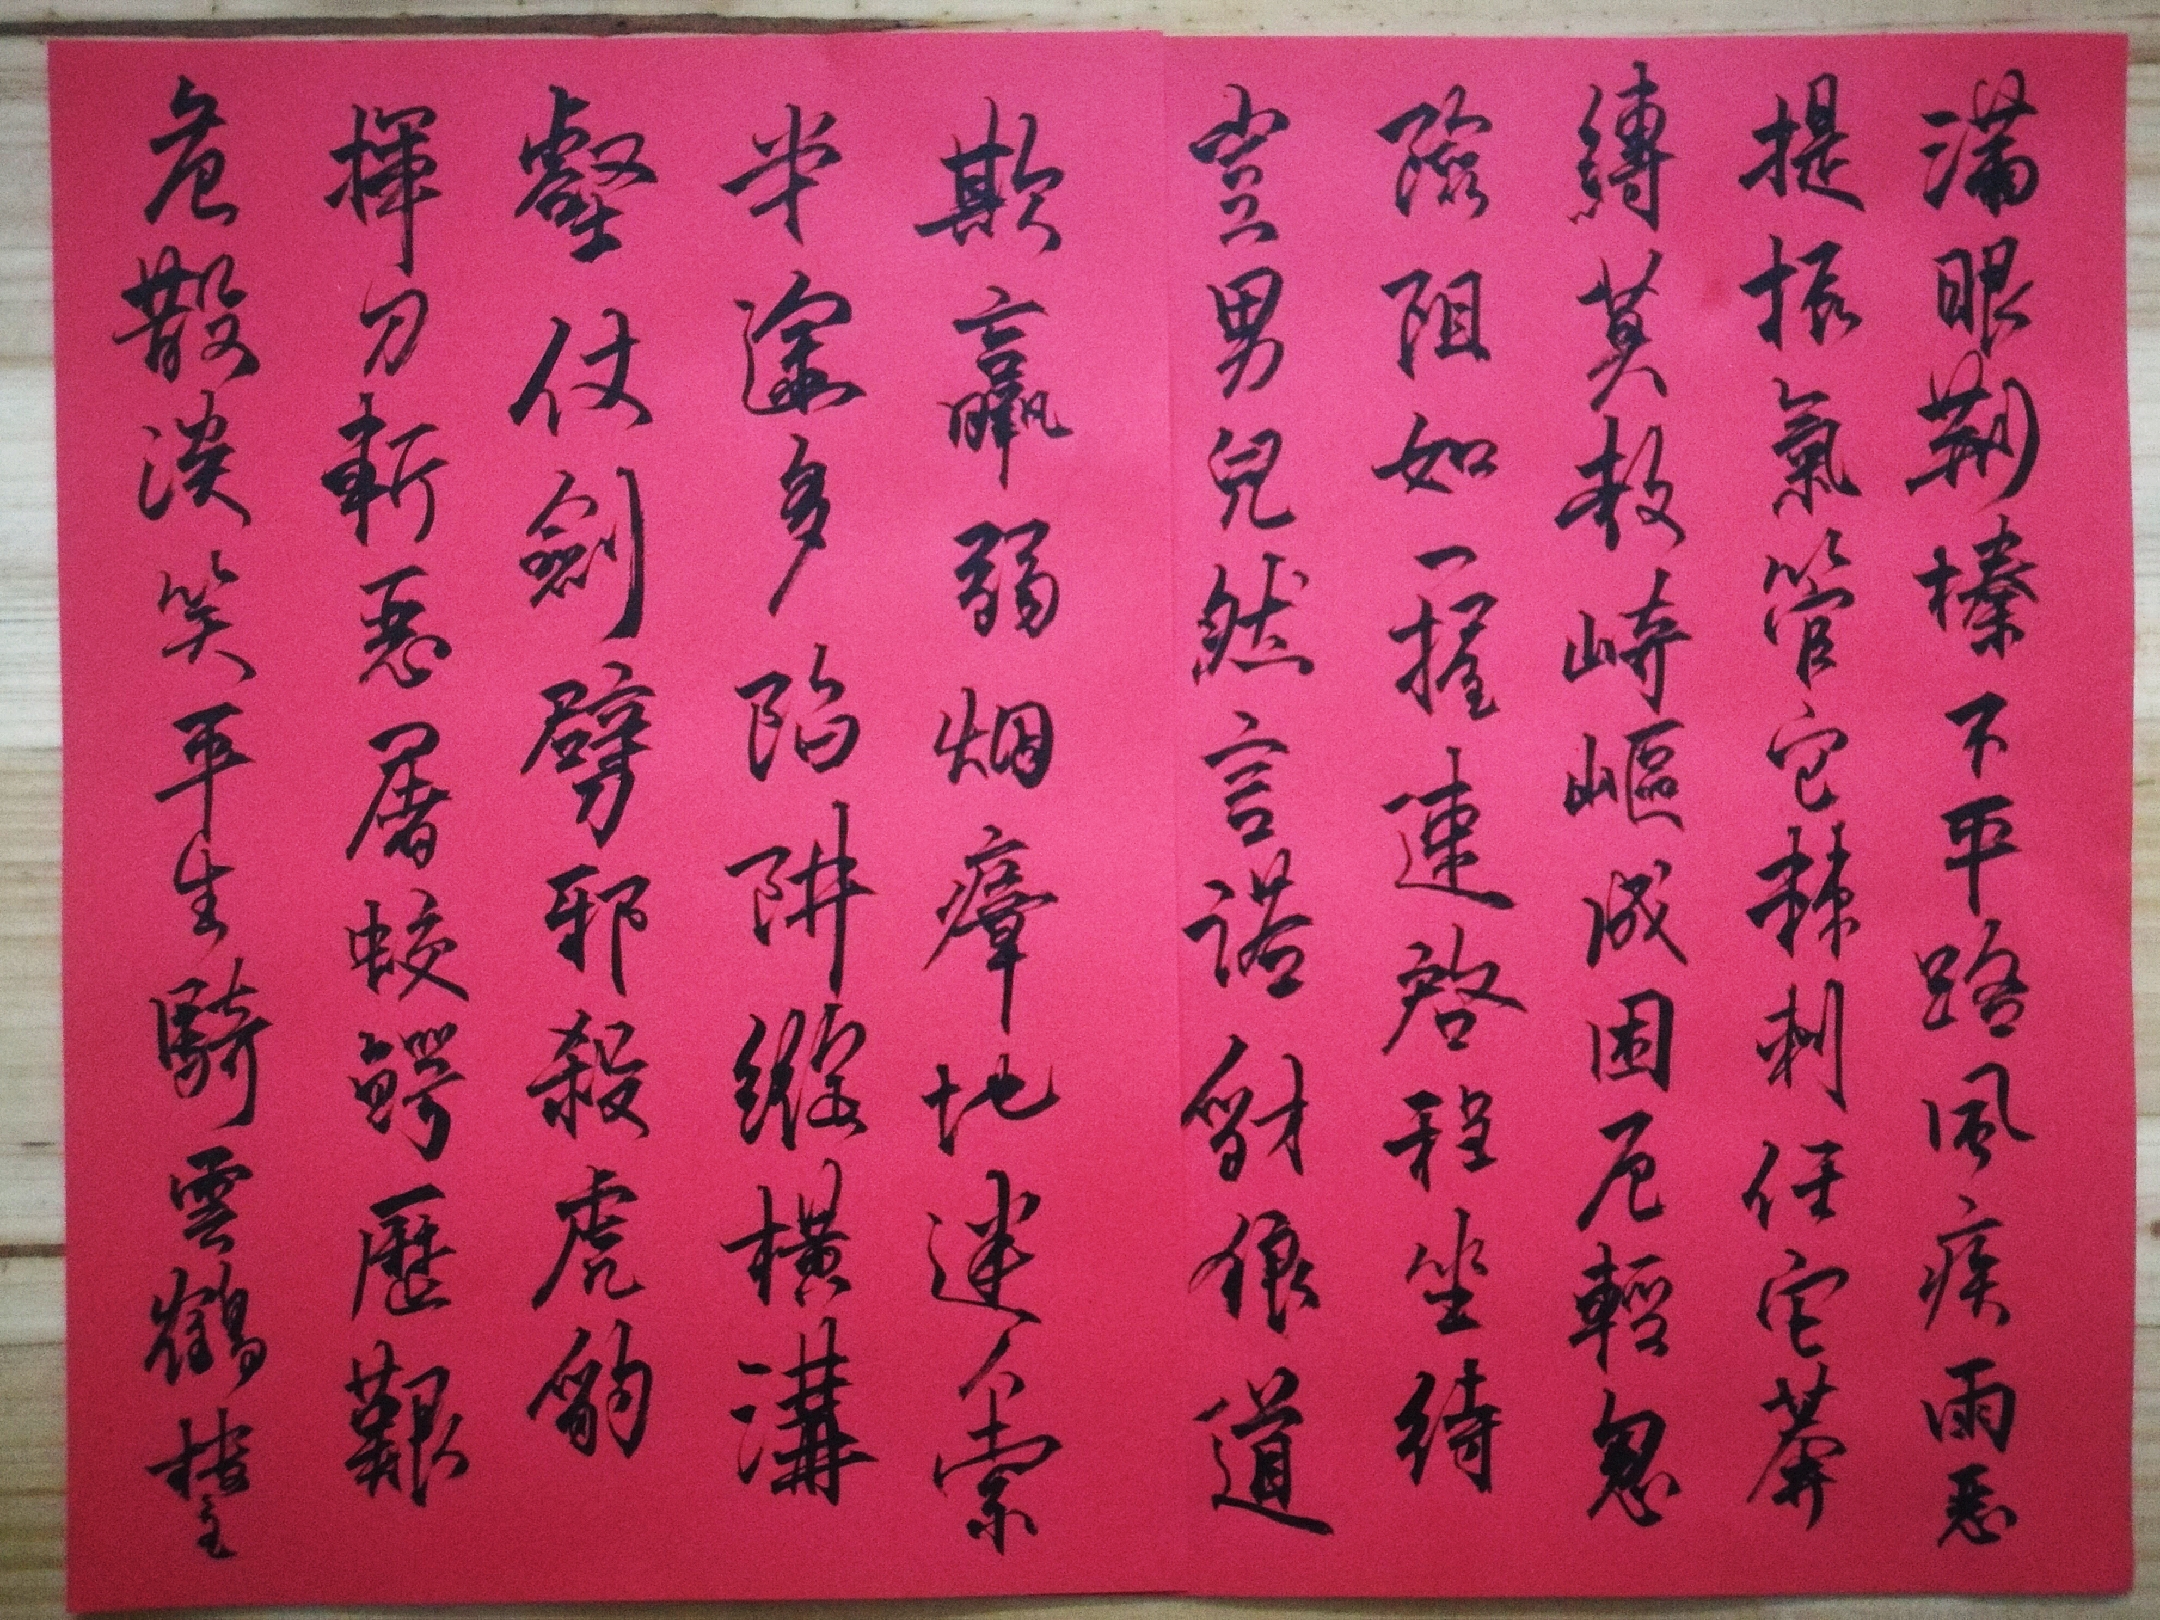 滿眼荆榛不平路風疾雨惡
提振氣管它棘刺任它莽
縛莫教崎嶇成困厄輕忽
險阻如一握速啓程坐待
豈男兒然言諾豺狼道
欺羸弱烟瘴地迷人索
半途多陷阱縱橫溝
壑仗劍劈邪殺虎豹
揮刀斬惡屠蛟鰐歷艱
危散淡笑平生騎雲鶴